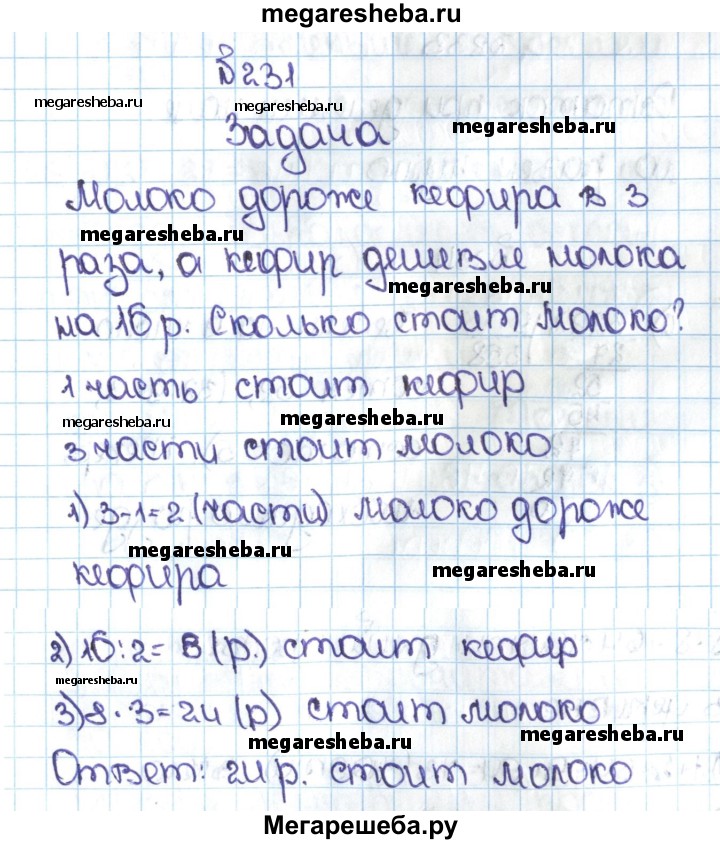 megaresheba.ru
№231
megaresheba.ru megaresheba.ru
Задача megaresheba.ru
Молоко дороже кефира в 3
megaresheba.ru
раза, а кефир дешевле молока
megaresheba.ru
на 16 р. Сколько стоит молоко?
1 часть стоит кефир
megaresheba.ru megaresheba.ru
3 части стоит молоко
1) 3-1=2 (части) молоко дороже
megaresheba.ru megaresheba.ru
кефира
2) 16:2= 8 (р.) стоит кефир
megaresheba.ru
3) 8 · 3=24 (р) стоит молоко
megaresheba.ru megaresheba.ru
Ответ: 24 р. стоит молоко
Мегарешеба.ру